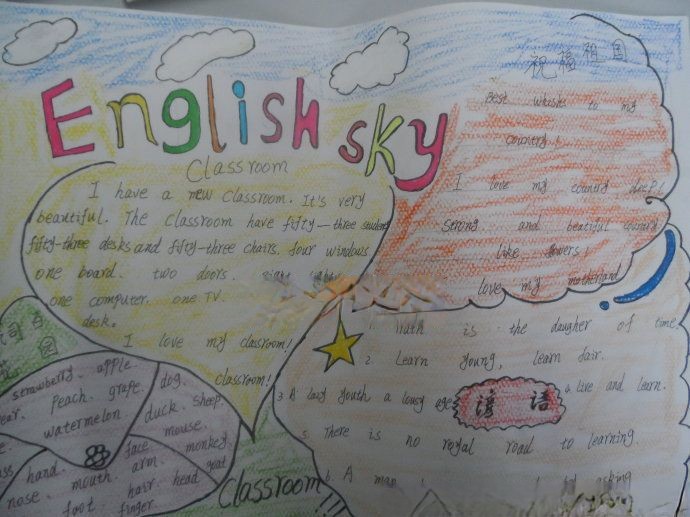 English sky
祝福祖国
Best wishs to my
country!
I love my country deepl
strong and beatiful country
like flowers!
love my motherland
Classroom
I have a new classroom. It's very
beautiful. The classroom have fifty-three students
fifty-three desks and fifty-three chairs. four windows
one board. two doors.
one computer. one TV.
desk.
I love my classroom!
classroom!
strawberry. apple.
pear. Peach. grape.
watermelon
dog.
duck. sheep.
mouse.
monkey.
goat
face
hand. mouth. arm.
nose. hair. head
foot. finger.
Classroom
1. is the daugher of time
2. Learn young, learn fair.
3. A lazy youth a lousy age
4. live and learn.
谚语
5. There is no royal road to learning.
6. A man